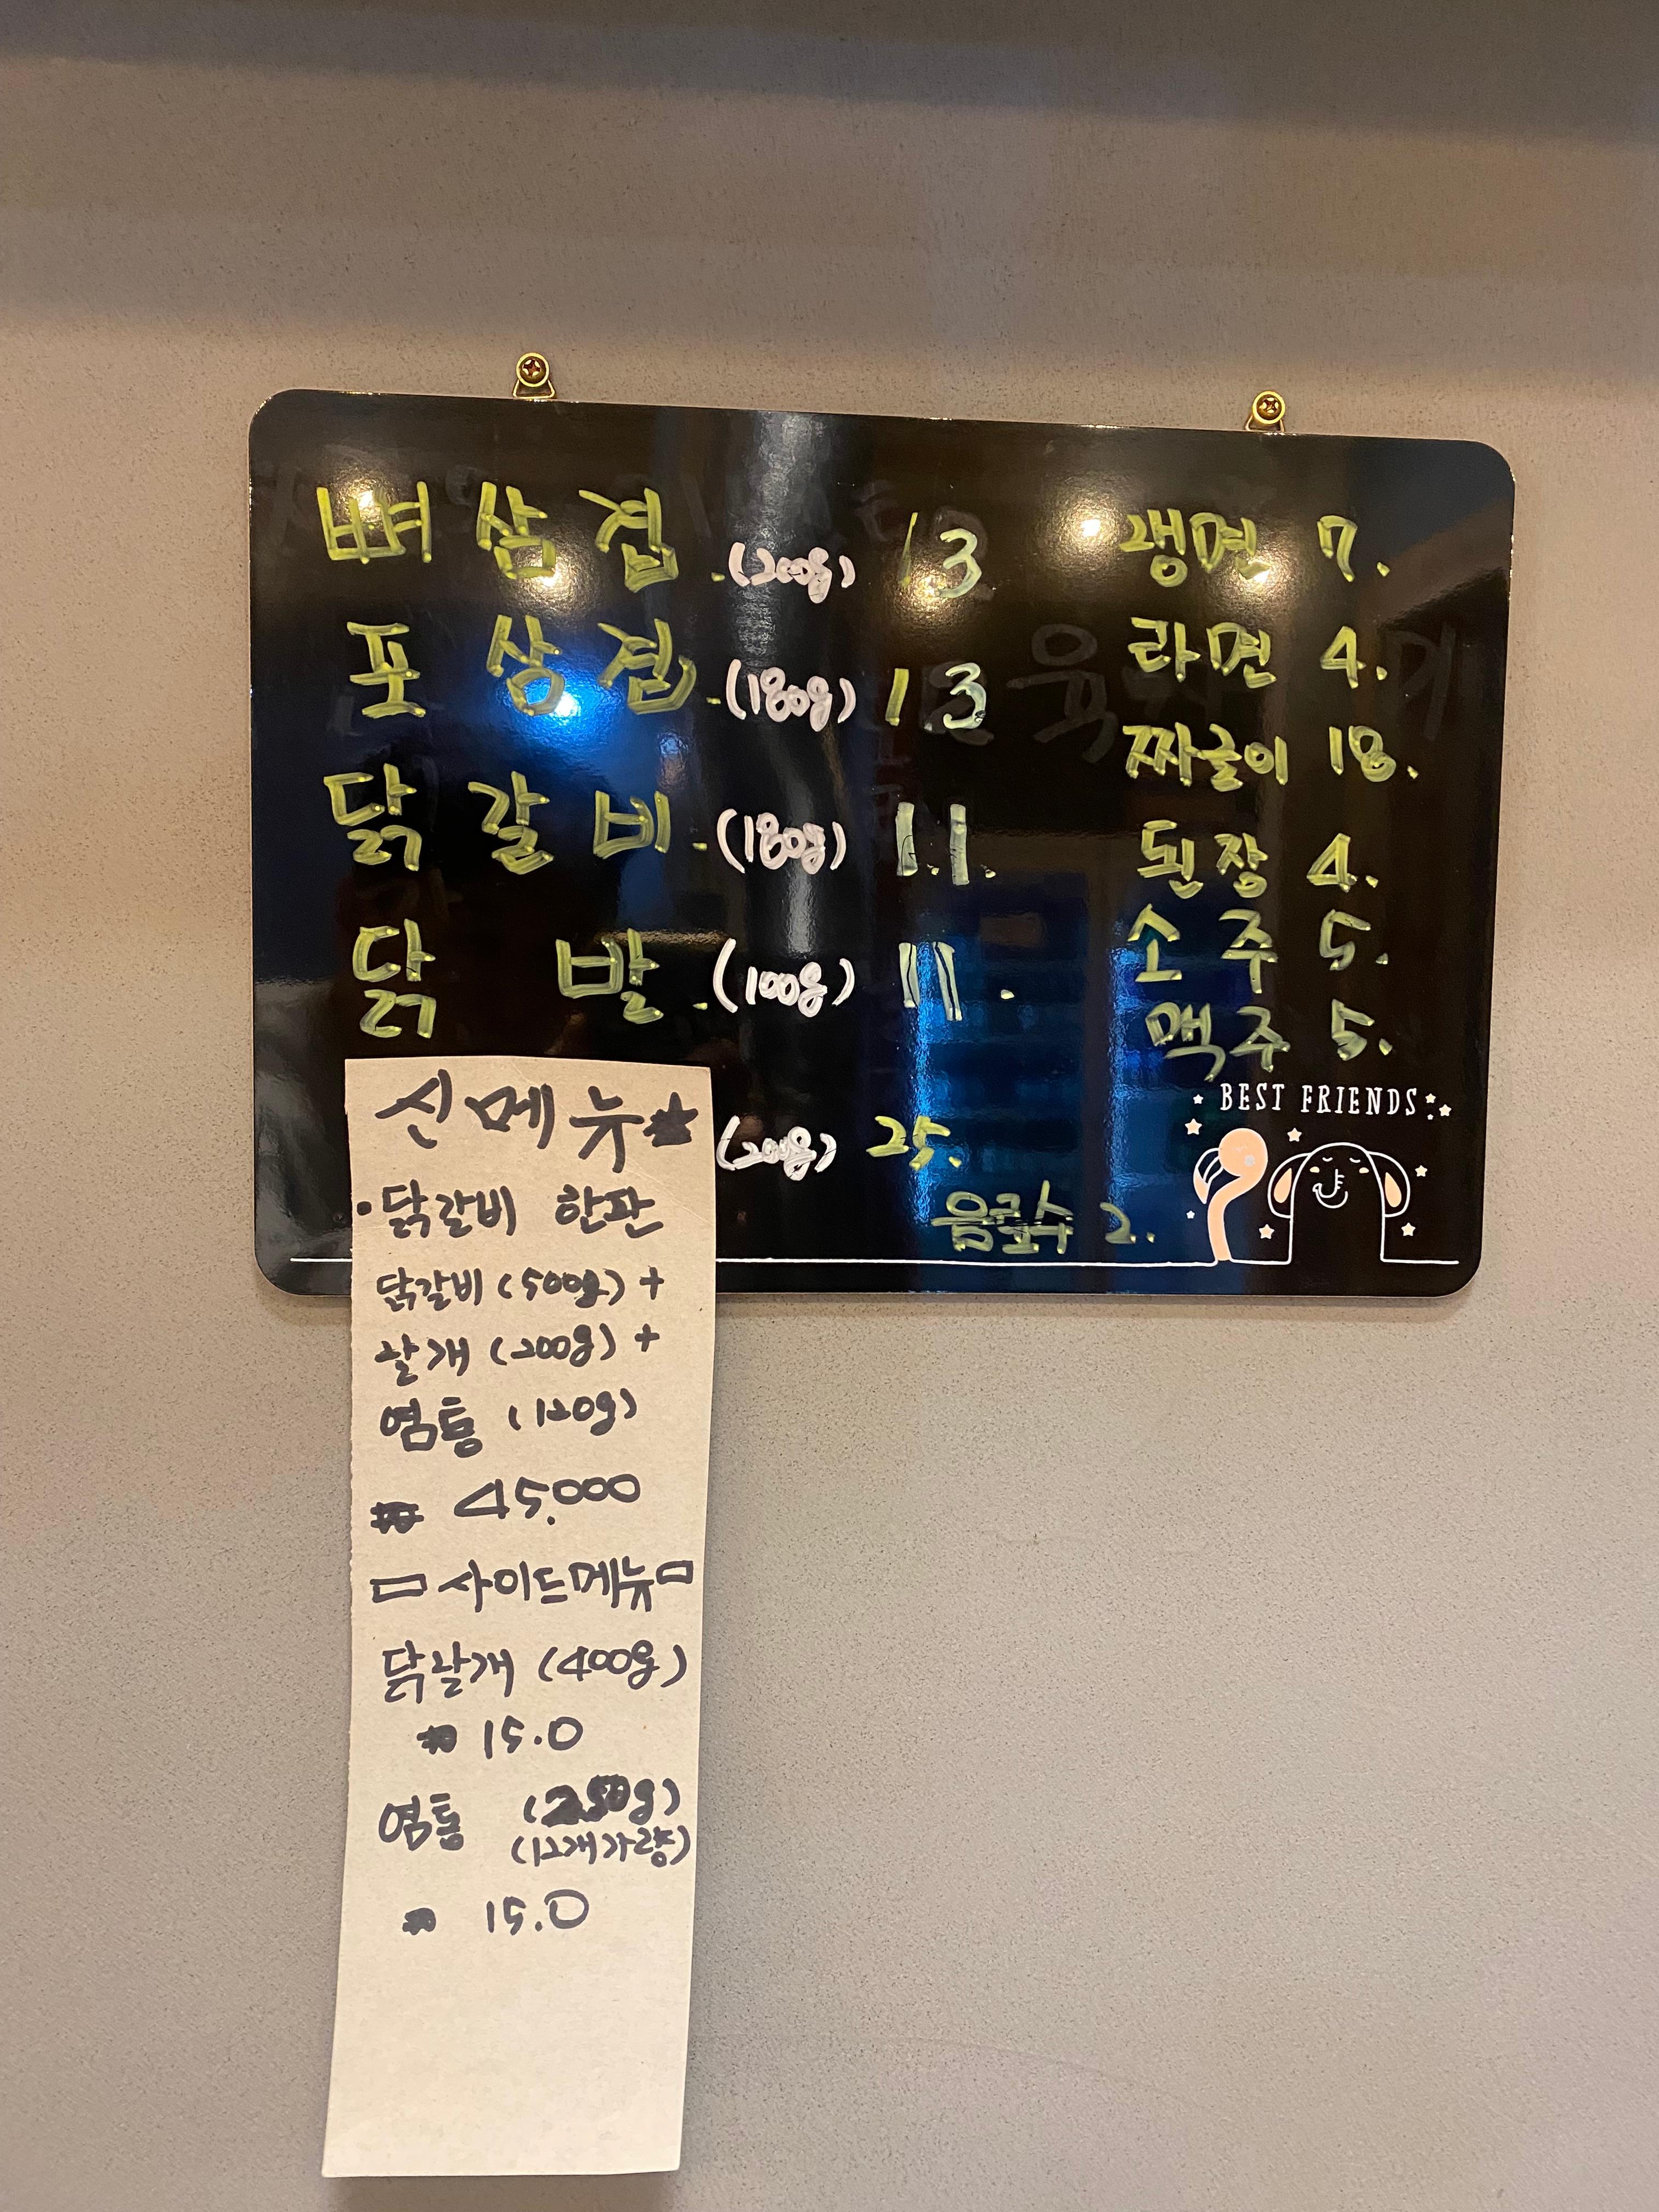 뼈 삼겹 . (200g) 13
포 삼겹 . (180g) 13
닭 갈 비 . (180g) 11.
닭 발 . (100g) 11.
(200g) 25.
갱면 7.
라면 4.
짜글이 18.
된장 4.
소주 5.
맥주 5.
음료수 2.
BEST FRIENDS
신메뉴★
·닭갈비 한판
닭갈비 (500g) +
날개 (200g) +
염통 (120g)
45.000
▭ 사이드메뉴 ▭
닭날개 (400g)
15.0
염통 (250g)
(12개가량)
15.0